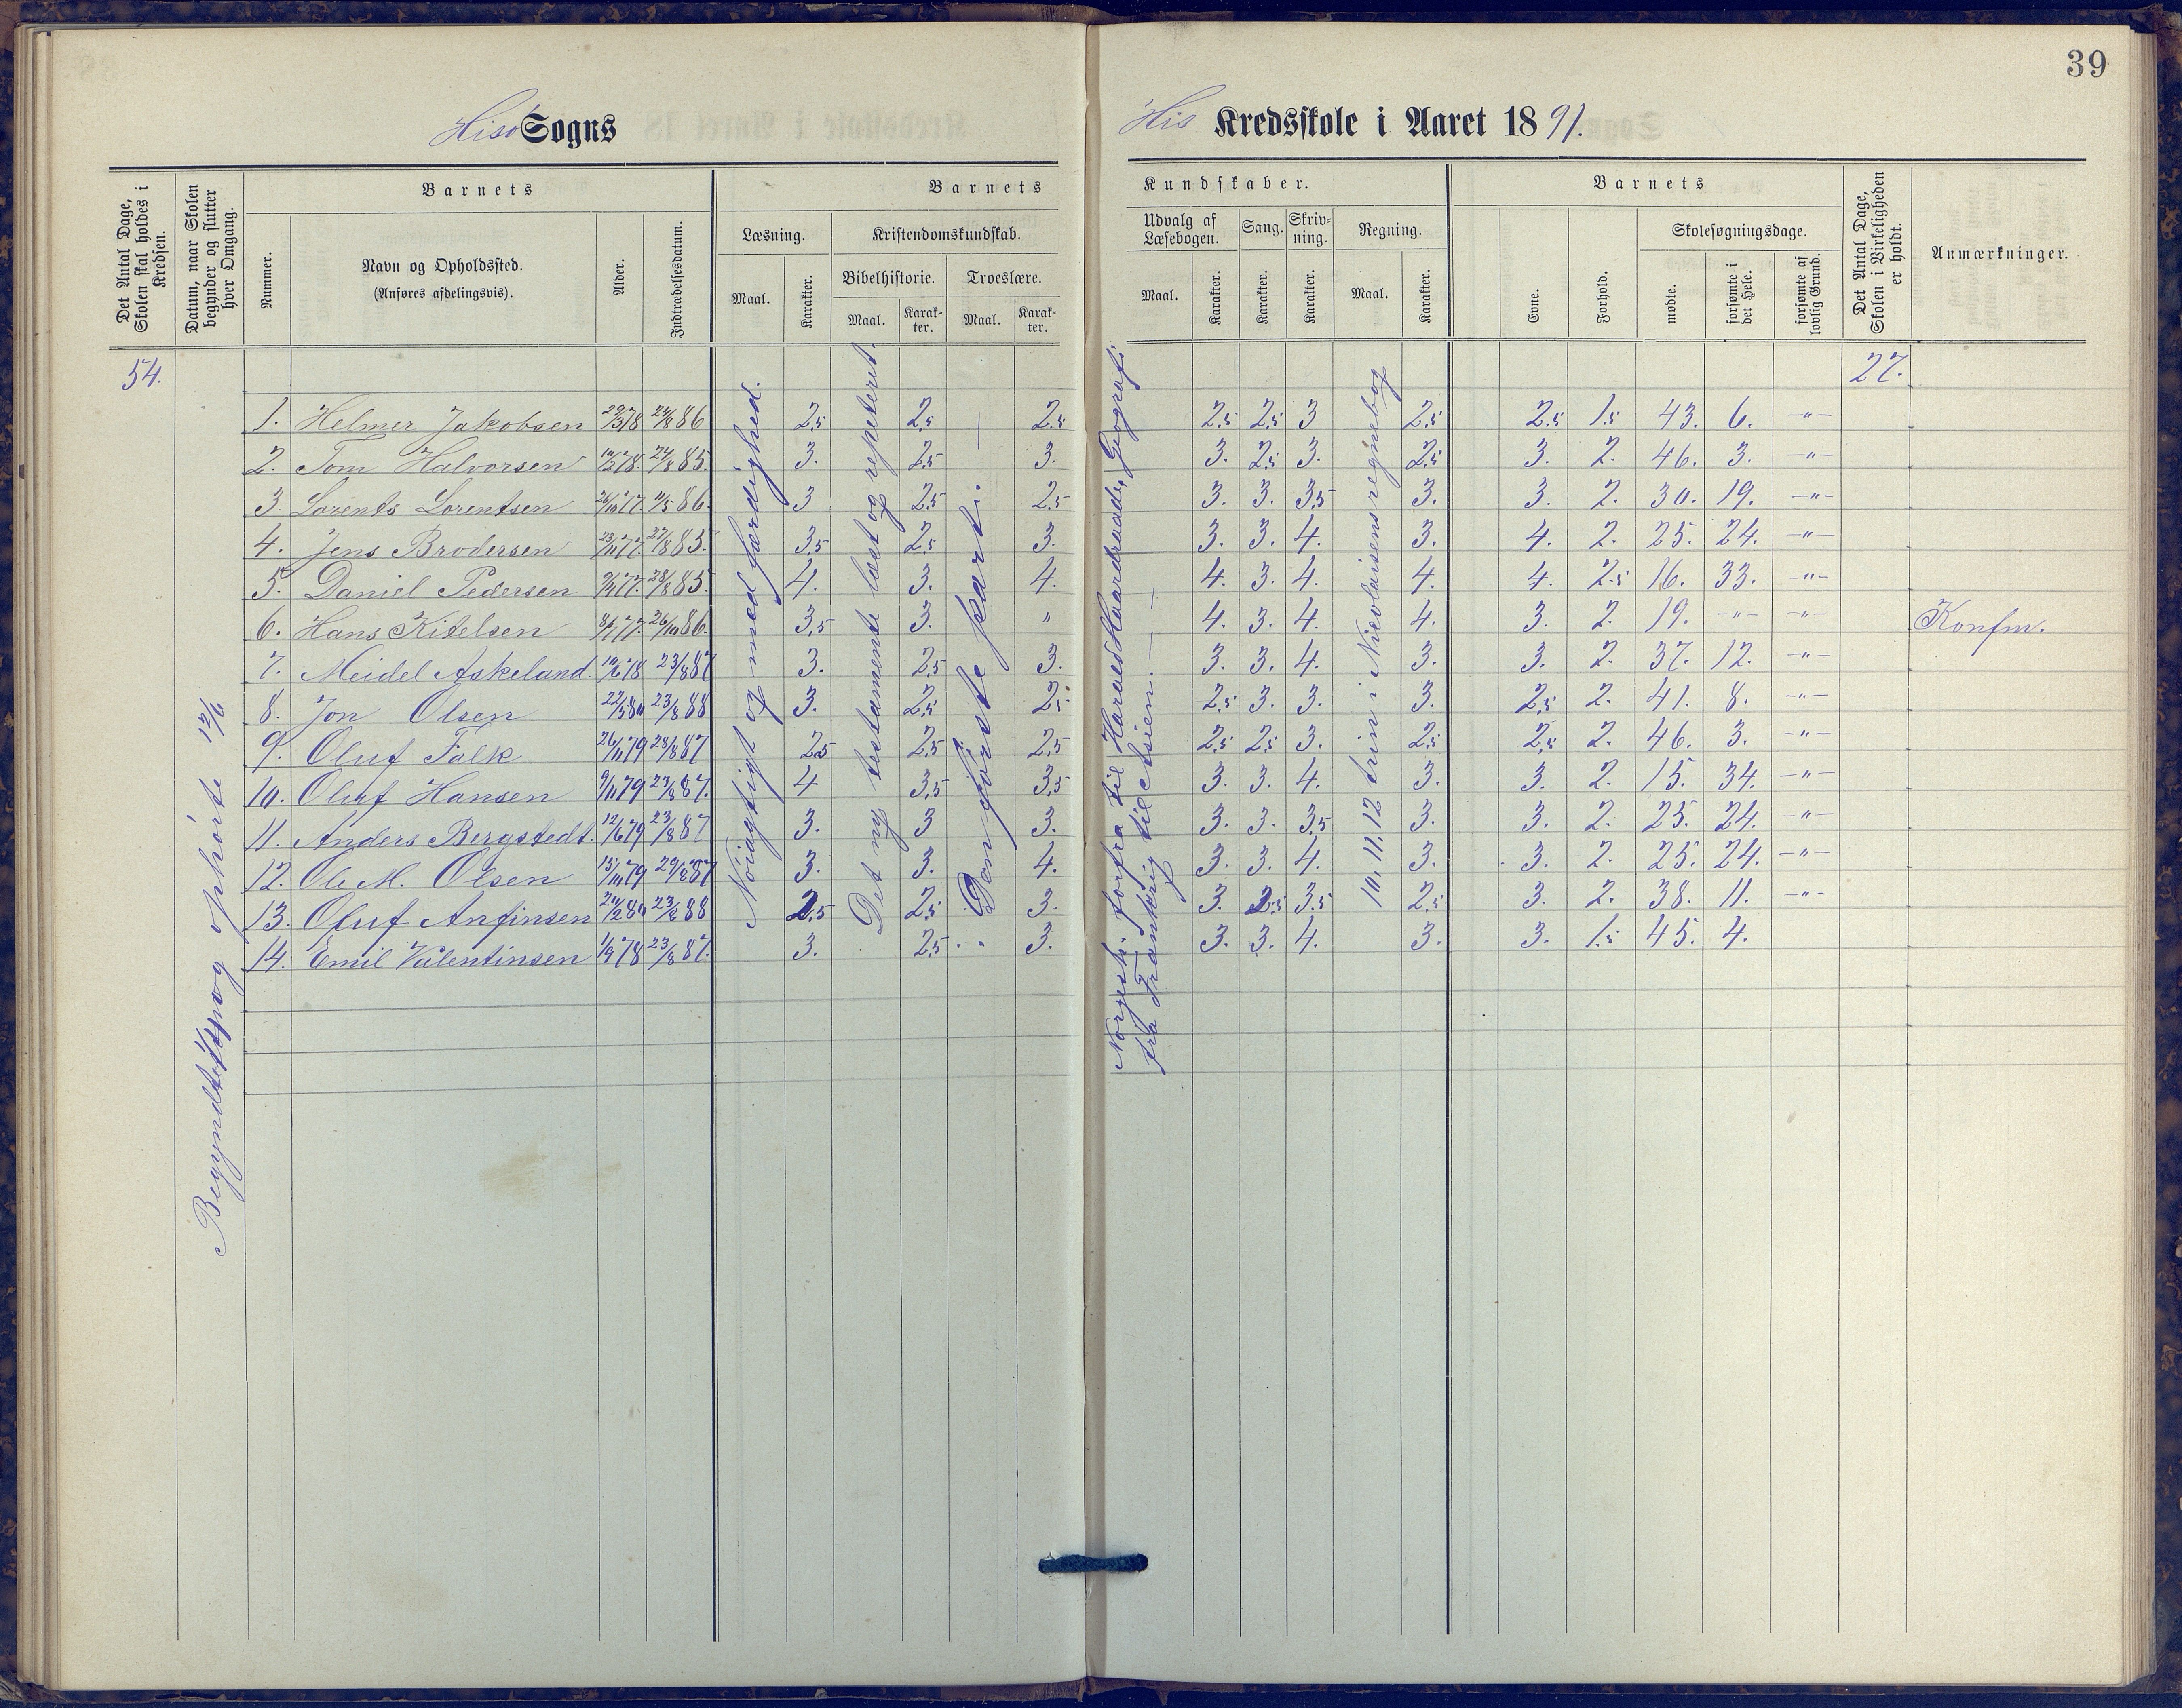 39
Hisø Sogns
His Kredsskole i Aaret 1891.
Det Antal Dage, Skolen skal holdes i Kredsen.
Datum, naar Skolen begynder og slutter hver Omgang.
Barnets
Nummer.
Navn og Opholdssted.
(Anføres afdelingsvis).
Alder.
Indtrædelsesdatum.
Barnets
Læsning.
Maal.
Karakter.
Kristendomskundskab.
Bibelhistorie.
Maal.
Karakter.
Troeslære.
Maal.
Karakter.
Kundskaber.
Udvalg af Læsebogen.
Maal.
Karakter.
Sang.
Karakter.
Skrivning.
Karakter.
Regning.
Maal.
Karakter.
Barnets
Evne.
Forhold.
Skolesøgningsdage.
mødte.
forsømte i det Hele.
forsømte af lovlig Grund.
Det Antal Dage, Skolen i Virkeligheden er holdt.
Anmærkninger.
54.
27.
Begyndte og ophørte 12/6
Nøiagtigt og med færdighed.
Det ny testamente læst og repeteret.
Den første part i. —
Norgesh. forfra til Harald Haardraade, Geografi
fra Frankrig til Asien. — —
10, 11, 12 trin i Nicolaisens regnebog
1. Helmer Jakobsen 29/3 78 24/8 86 2,5 2,5 2,5 2,5 2,5 3 2,5 2,5 1,5 43. 6. –"–
2. Tom Halvorsen 78. 24/8 85. 3. 2,5 3. 3. 2,5 3. 2,5 3. 2. 46. 3. –"–
3. Lorents Lorentsen 26/10 77. 11/5 86. 3 2,5 2,5 3. 3. 3,5 3. 3. 2. 30. 19. –"–
4. Jens Brodersen 23/11 77. 85. 3,5 2,5 3. 3. 3. 4. 3. 4. 2. 25. 24. –"–
5. Daniel Pedersen 77. 28/8 85. 4. 3. 4. 4. 3. 4. 4. 4. 2.5 16. 33. –"–
6. Hans Kitelsen 77. 26/10 86. 3,5 3. " 4. 3. 4. 4. 3. 2. 19. –"– –"– Konfm.
7. Meidel Askeland. 10/6 78 23/8 87 3. 2,5 3. 3. 3. 4. 3. 3. 2. 37. 12. –"–
8. Jon Olsen 22/5 80 23/8 88 3. 2,5 2,5 2,5 3. 3. 3. 2,5 2. 41. 8. –"–
9. Oluf Falk 26/11 79 87 2,5 2,5 2,5 2,5 2,5 3. 2,5 2,5 2. 46. 3. –"–
10. Oluf Hansen 9/11 79 23/8 87. 4 3,5 3,5 3. 3. 4. 3. 3. 2. 15. 34. –"–
11. Anders Bergstedt. 12/6 79 23/8 87 3. 3 3. 3. 3. 3,5 3. 3. 2. 25. 24. –"–
12. Ole M. Olsen 79 87 3. 3. 4. 3. 3. 4. 3. 3. 2. 25. 24. –"–
13. Oluf Anfinsen 80 23/8 88 2,5 2,5 3. 3. 2,5 3.5 2,5 3. 2. 38. 11. –"–
14. Emil Valentinsen 1/9 78 23/8 87. 3. 2,5 3. 3. 3. 4. 3. 3. 1.5 45. 4.